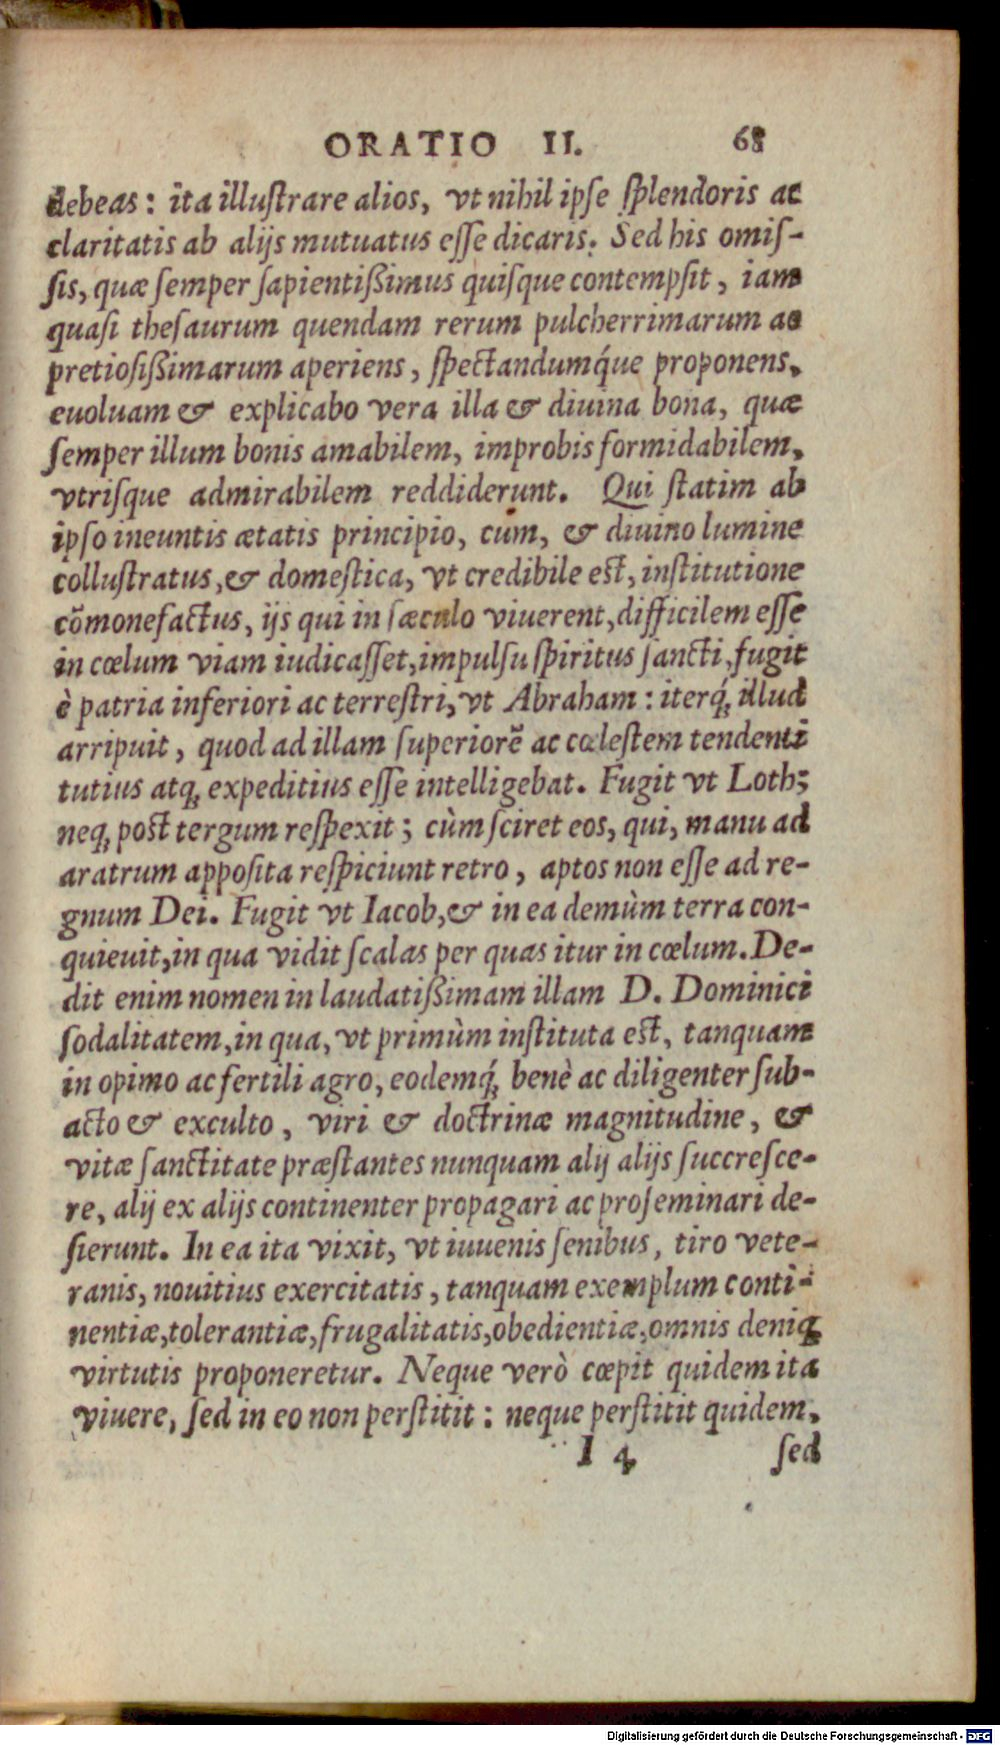 ORATIO II. 68
debeas: ita illuſtrare alios, vt nihil ipſe ſplendoris ac
claritatis ab alijs mutuatus eſſe dicaris. Sed his omiſ-
ſis, quæ ſemper ſapientißimus quiſque contempſit, iam
quaſi theſaurum quendam rerum pulcherrimarum ac
pretioſißimarum aperiens, ſpectandumq́ue proponens,
euoluam & explicabo vera illa & diuina bona, quæ
ſemper illum bonis amabilem, improbis formidabilem,
vtriſque admirabilem reddiderunt. Qui ſtatim ab
ipſo ineuntis ætatis principio, cùm, & diuino lumine
colluſtratus, & domeſtica, vt credibile eſt, inſtitutione
cõmonefactus, ijs qui in ſæculo viuerent, difficilem eſſe
in cœlum viam iudicaſſet, impulſu ſpiritus ſancti, fugit
è patria inferiori ac terreſtri, vt Abraham: iterq́ꝫ illud
arripuit, quod ad illam ſuperiorẽ ac cœleſtem tendenti
tutius atqꝫ expeditius eſſe intelligebat. Fugit vt Loth;
neqꝫ poſt tergum reſpexit; cùm ſciret eos, qui, manu ad
aratrum appoſita reſpiciunt retro, aptos non eſſe ad re-
gnum Dei. Fugit vt Iacob, & in ea demùm terra con-
quieuit, in qua vidit ſcalas per quas itur in cœlum. De-
dit enim nomen in laudatißimam illam D. Dominici
ſodalitatem, in qua, vt primùm inſtituta eſt, tanquam
in opimo ac fertili agro, eodemq́ꝫ benè ac diligenter ſub-
acto & exculto, viri & doctrinæ magnitudine, &
vitæ ſanctitate præſtantes nunquam alij alijs ſuccreſce-
re, alij ex alijs continenter propagari ac proſeminari de-
ſierunt. In ea ita vixit, vt iuuenis ſenibus, tiro vete-
ranis, nouitius exercitatis, tanquam exemplum conti-
nentiæ, tolerantiæ, frugalitatis, obedientiæ, omnis deniqꝫ
virtutis proponeretur. Neque verò cœpit quidem ita
viuere, ſed in eo non perſtitit: neque perſtitit quidem,
I 4 ſed
Digitalisierung gefördert durch die Deutsche Forschungsgemeinschaft - DFG